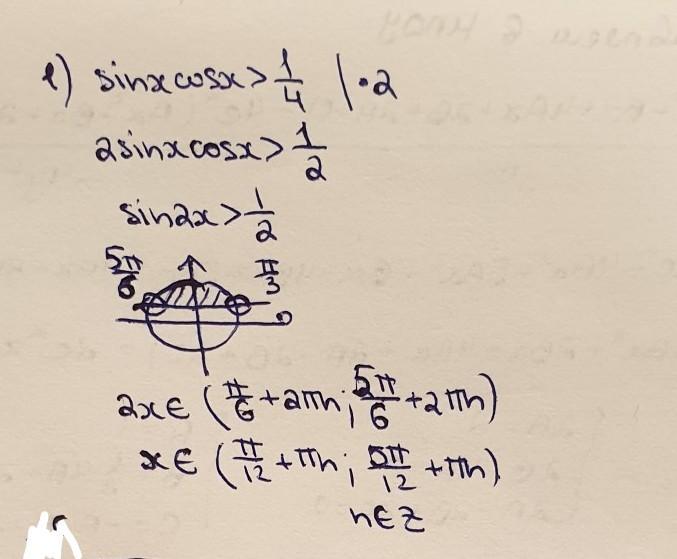 е) sinxcosx > 1/4 | ·2
2sinxcosx > 1/2
sin2x > 1/2
5π/6 π/3
2x ∈ (π/6 + 2πn; 5π/6 + 2πn)
x ∈ (π/12 + πn; 5π/12 + πn)
n ∈ Z